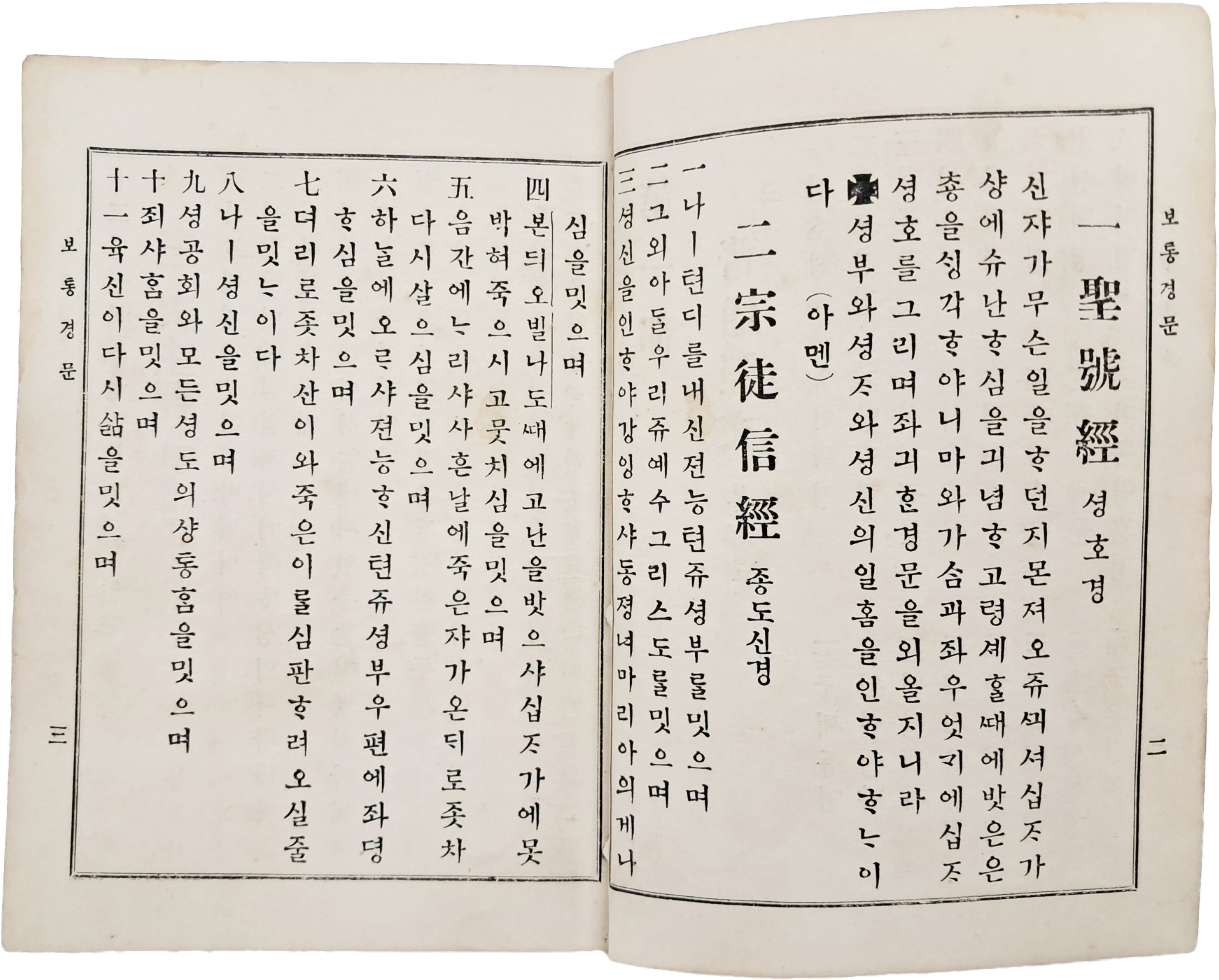 보통경문
一 聖號經 셩호경
신쟈가무슨일을ᄒᆞ던지몬져오쥬ᄭᅴ셔십ᄌᆞ가
샹에슈난ᄒᆞ심을긔념ᄒᆞ고령셰ᄒᆞᆯᄯᅢ에밧은은
춍을ᄉᆡᆼ각ᄒᆞ야니마와가ᄉᆞᆷ과좌우엇ᄀᆡ에십ᄌᆞ
셩호를그리며좌긔ᄒᆞᆫ경문을외올지니라
✠셩부와셩ᄌᆞ와셩신의일홈을인ᄒᆞ야ᄒᆞᄂᆞ이
다 (아멘)
二 宗徒信經 종도신경
一 나ㅣ텬디를내신젼능텬쥬셩부ᄅᆞᆯ밋으며
二 그외아ᄃᆞᆯ우리쥬예수그리스도ᄅᆞᆯ밋으며
三 셩신을인ᄒᆞ야강잉ᄒᆞ샤동졍녀마리아의게나
二
심을밋으며
四 본듸오빌나도ᄯᅢ에고난을밧으샤십ᄌᆞ가에못
박혀죽으시고뭇치심을밋으며
五 음간에ᄂᆞ리샤사흔날에죽은쟈가온ᄃᆡ로좃차
다시살으심을밋으며
六 하ᄂᆞᆯ에오ᄅᆞ샤젼능ᄒᆞ신텬쥬셩부우편에좌뎡
ᄒᆞ심을밋으며
七 뎌리로좃차산이와죽은이ᄅᆞᆯ심판ᄒᆞ려오실줄
을밋ᄂᆞ이다
八 나ㅣ셩신을밋으며
九 셩공회와모든셩도의샹통홈을밋으며
十 죄샤홈을밋으며
十一 육신이다시삶을밋으며
보통경문
三